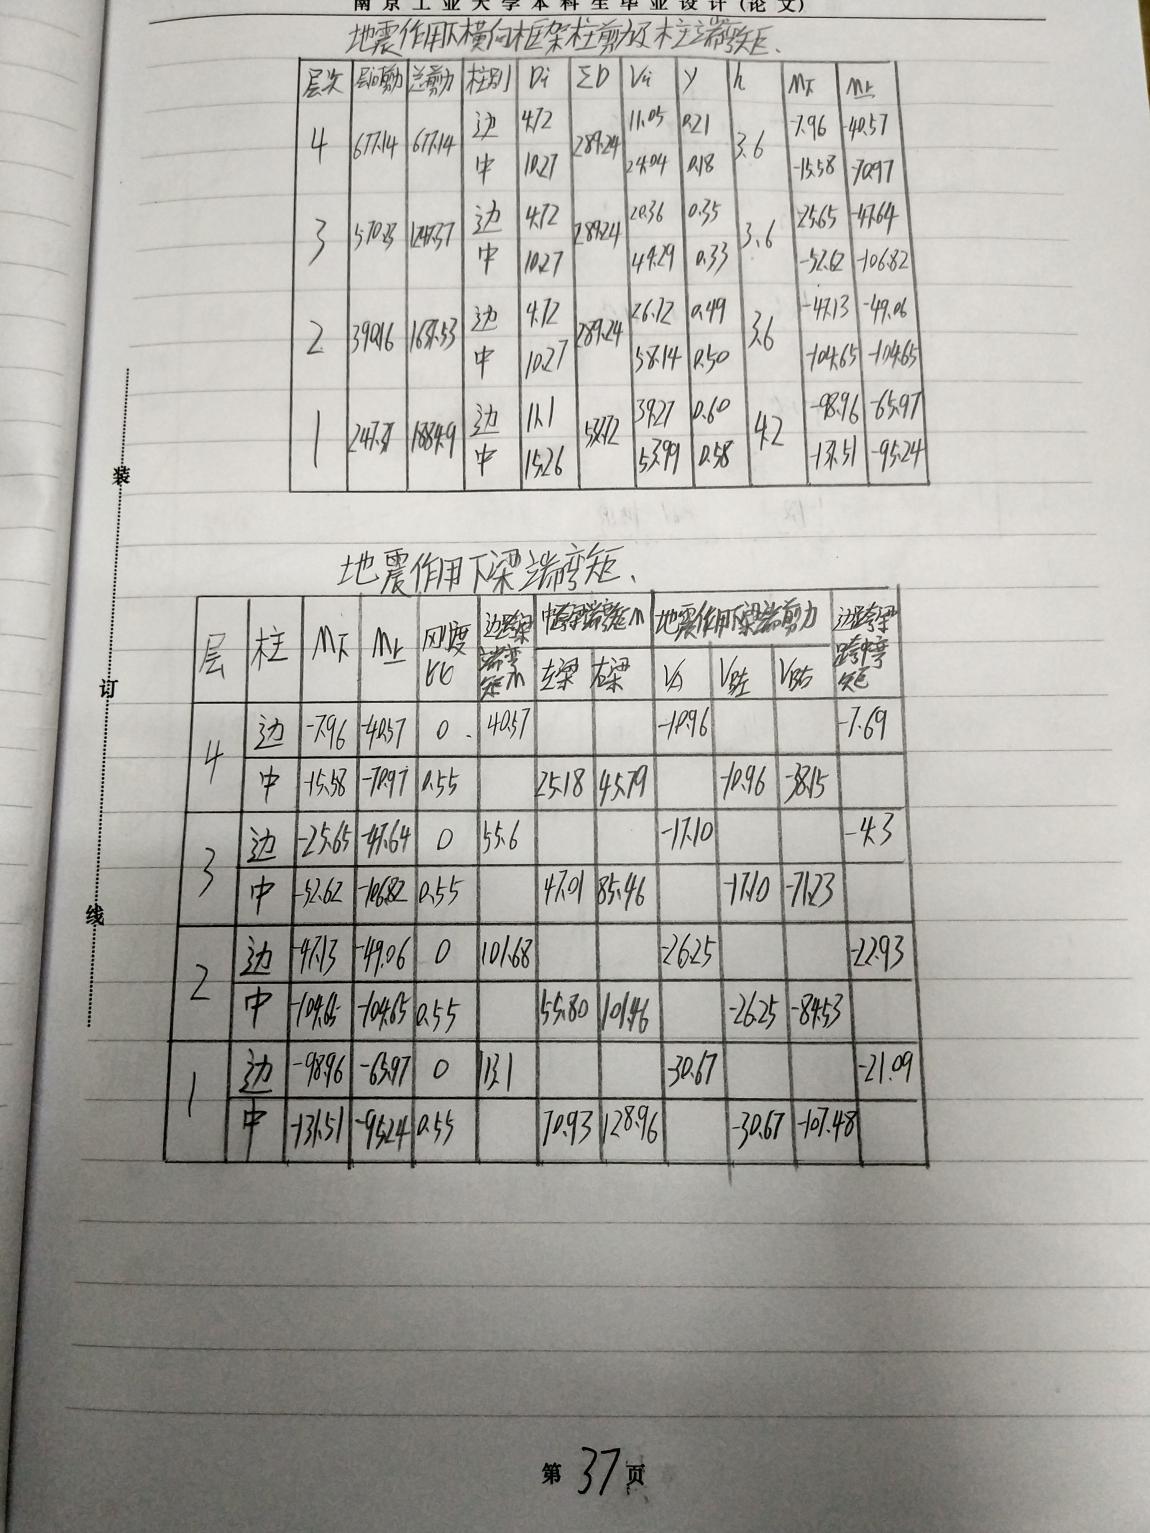 南京工业大学本科生毕业设计(论文)
地震作用下横向框架柱剪力及柱端弯矩、
层次 层间剪力 总剪力 柱别 Di ΣD Vi y h M下 M上
4 677.14 677.14 边 4.72 289.24 11.05 0.21 3.6 -7.96 -40.57
中 10.27 24.04 0.18 -15.58 -70.97
3 570.23 1247.37 边 4.72 289.24 20.36 0.35 3.6 -25.65 -47.64
中 10.27 44.29 0.33 -52.62 -106.82
2 390.16 1637.53 边 4.72 289.24 26.72 0.49 3.6 -47.13 -49.06
中 10.27 58.14 0.50 -104.65 -104.65
1 247.37 1884.9 边 11.1 39.27 0.60 4.2 -98.96 -65.97
中 15.26 53.99 0.58 -131.51 -95.24
地震作用下梁端弯矩、
层 柱 M下 M上 刚度比 边跨梁端弯矩M 中跨梁端弯矩M 地震作用下梁端剪力 边跨梁跨中弯矩
左梁 右梁 VA VB左 VB右
4 边 -7.96 -40.57 0 40.57 -10.96 -7.69
中 -15.58 -70.97 0.55 25.18 45.79 -10.96 -38.15
3 边 -25.65 -47.64 0 55.6 -17.10 -4.3
中 -52.62 -106.82 0.55 47.01 85.46 -17.10 -71.23
2 边 -47.13 -49.06 0 101.68 -26.25 -22.93
中 -104.65 -104.65 0.55 55.80 101.46 -26.25 -84.53
1 边 -98.96 -65.97 0 113.1 -30.67 -21.09
中 -131.51 -95.24 0.55 70.93 128.96 -30.67 -107.48
装
订
线
第 37 页